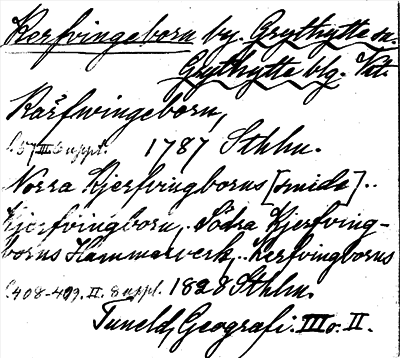 Kerfvingeborn by. Grythytte sn.
Grythytte blg. Vstm.
Karfwingeborn,
s. 57 III Suppl. 1787 Sthlm.
Norra Kjerfvingborns [smide]..
Kjerfvingborn, Södra Kjerfving-
borns Hammarverk,. Kerfvingborns
s. 408-409. II. Suppl. 1828 Sthlm.
Tuneld, Geografi. III o. II.